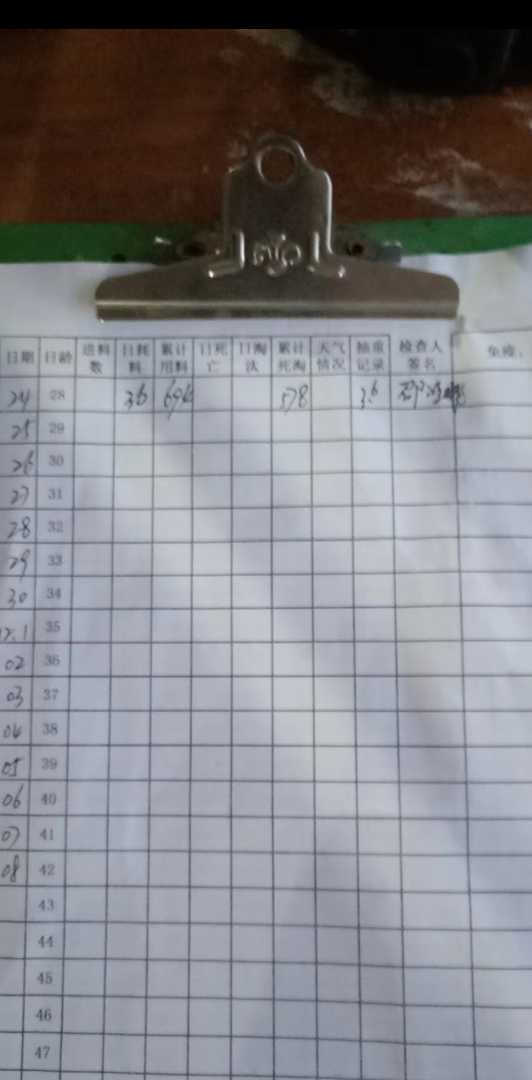 日期 日龄 进料数 日耗料 累计用料 日死亡 日淘汰 累计死淘 天气情况 抽重记录 检查人签名 免疫、
24 28 36 696 578 3.6
25 29
26 30
27 31
28 32
29 33
30 34
12.1 35
02 36
03 37
04 38
05 39
06 40
07 41
08 42
43
44
45
46
47